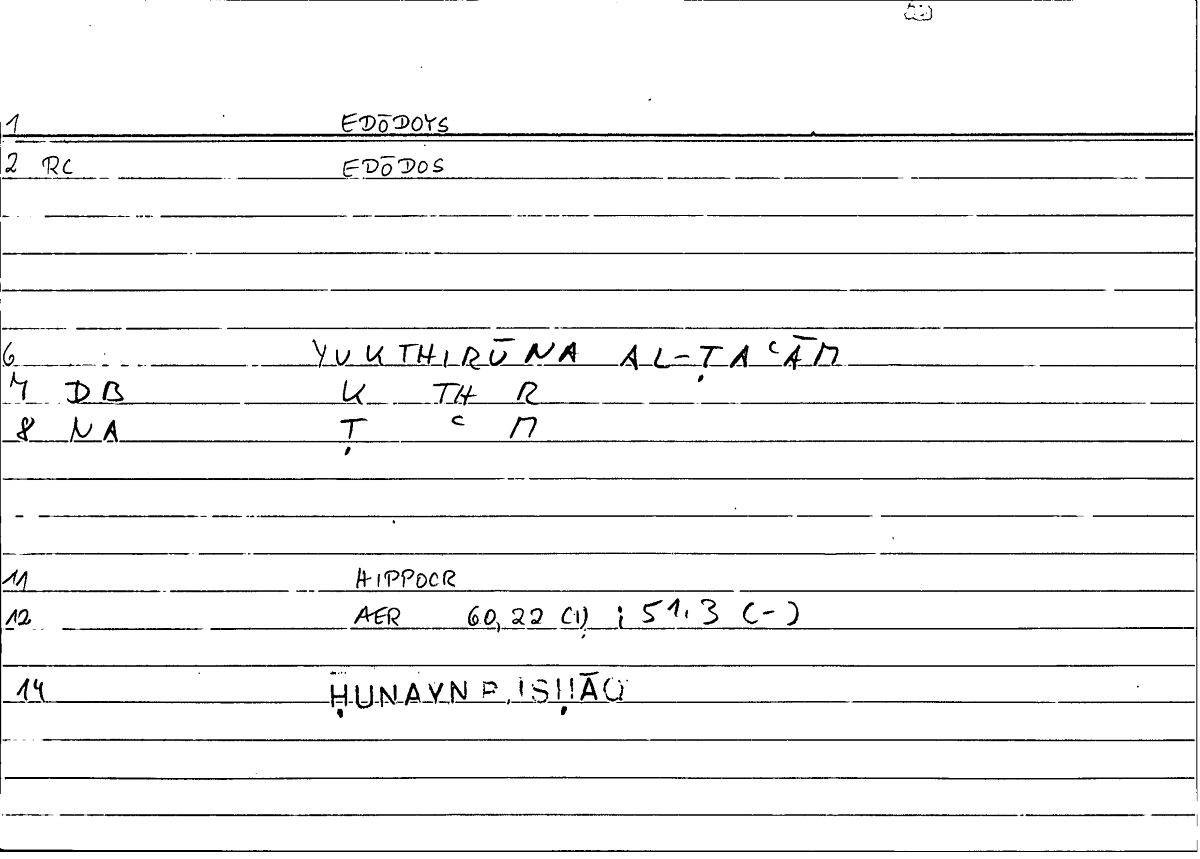 1 EDŌDOYS
2 RC EDŌDOS
6 YUKTHIRŪNA AL-ṬAʿĀM
7 DB K TH R
8 NA Ṭ ʿ M
11 HIPPOCR
12 AER 60,22 (1) ; 51.3 (-)
14 ḤUNAYN B. ISḤĀQ